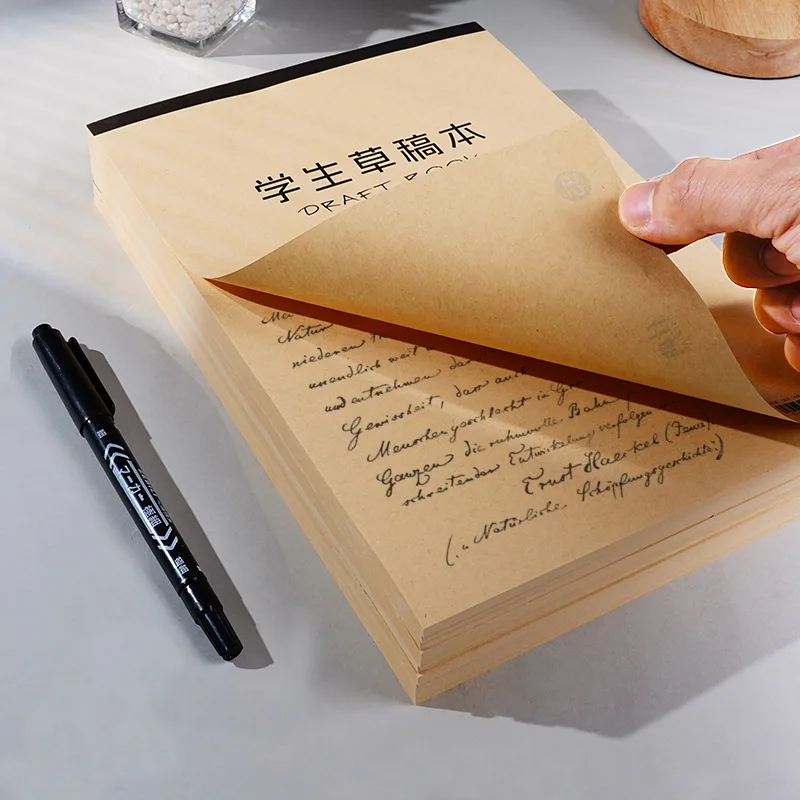 学生草稿本
DRAFT BOOK
Natur
niederen
unendlich weit
und entnehmen
Gewissheit, dass auch
Menschengeschlecht in
Ganzen die ruhmvolle Bahn
schreitender Entwickelung verfolgen
Ernst Haeckel (Jena)
(„Natürliche Schöpfungsgeschichte")
マーカー